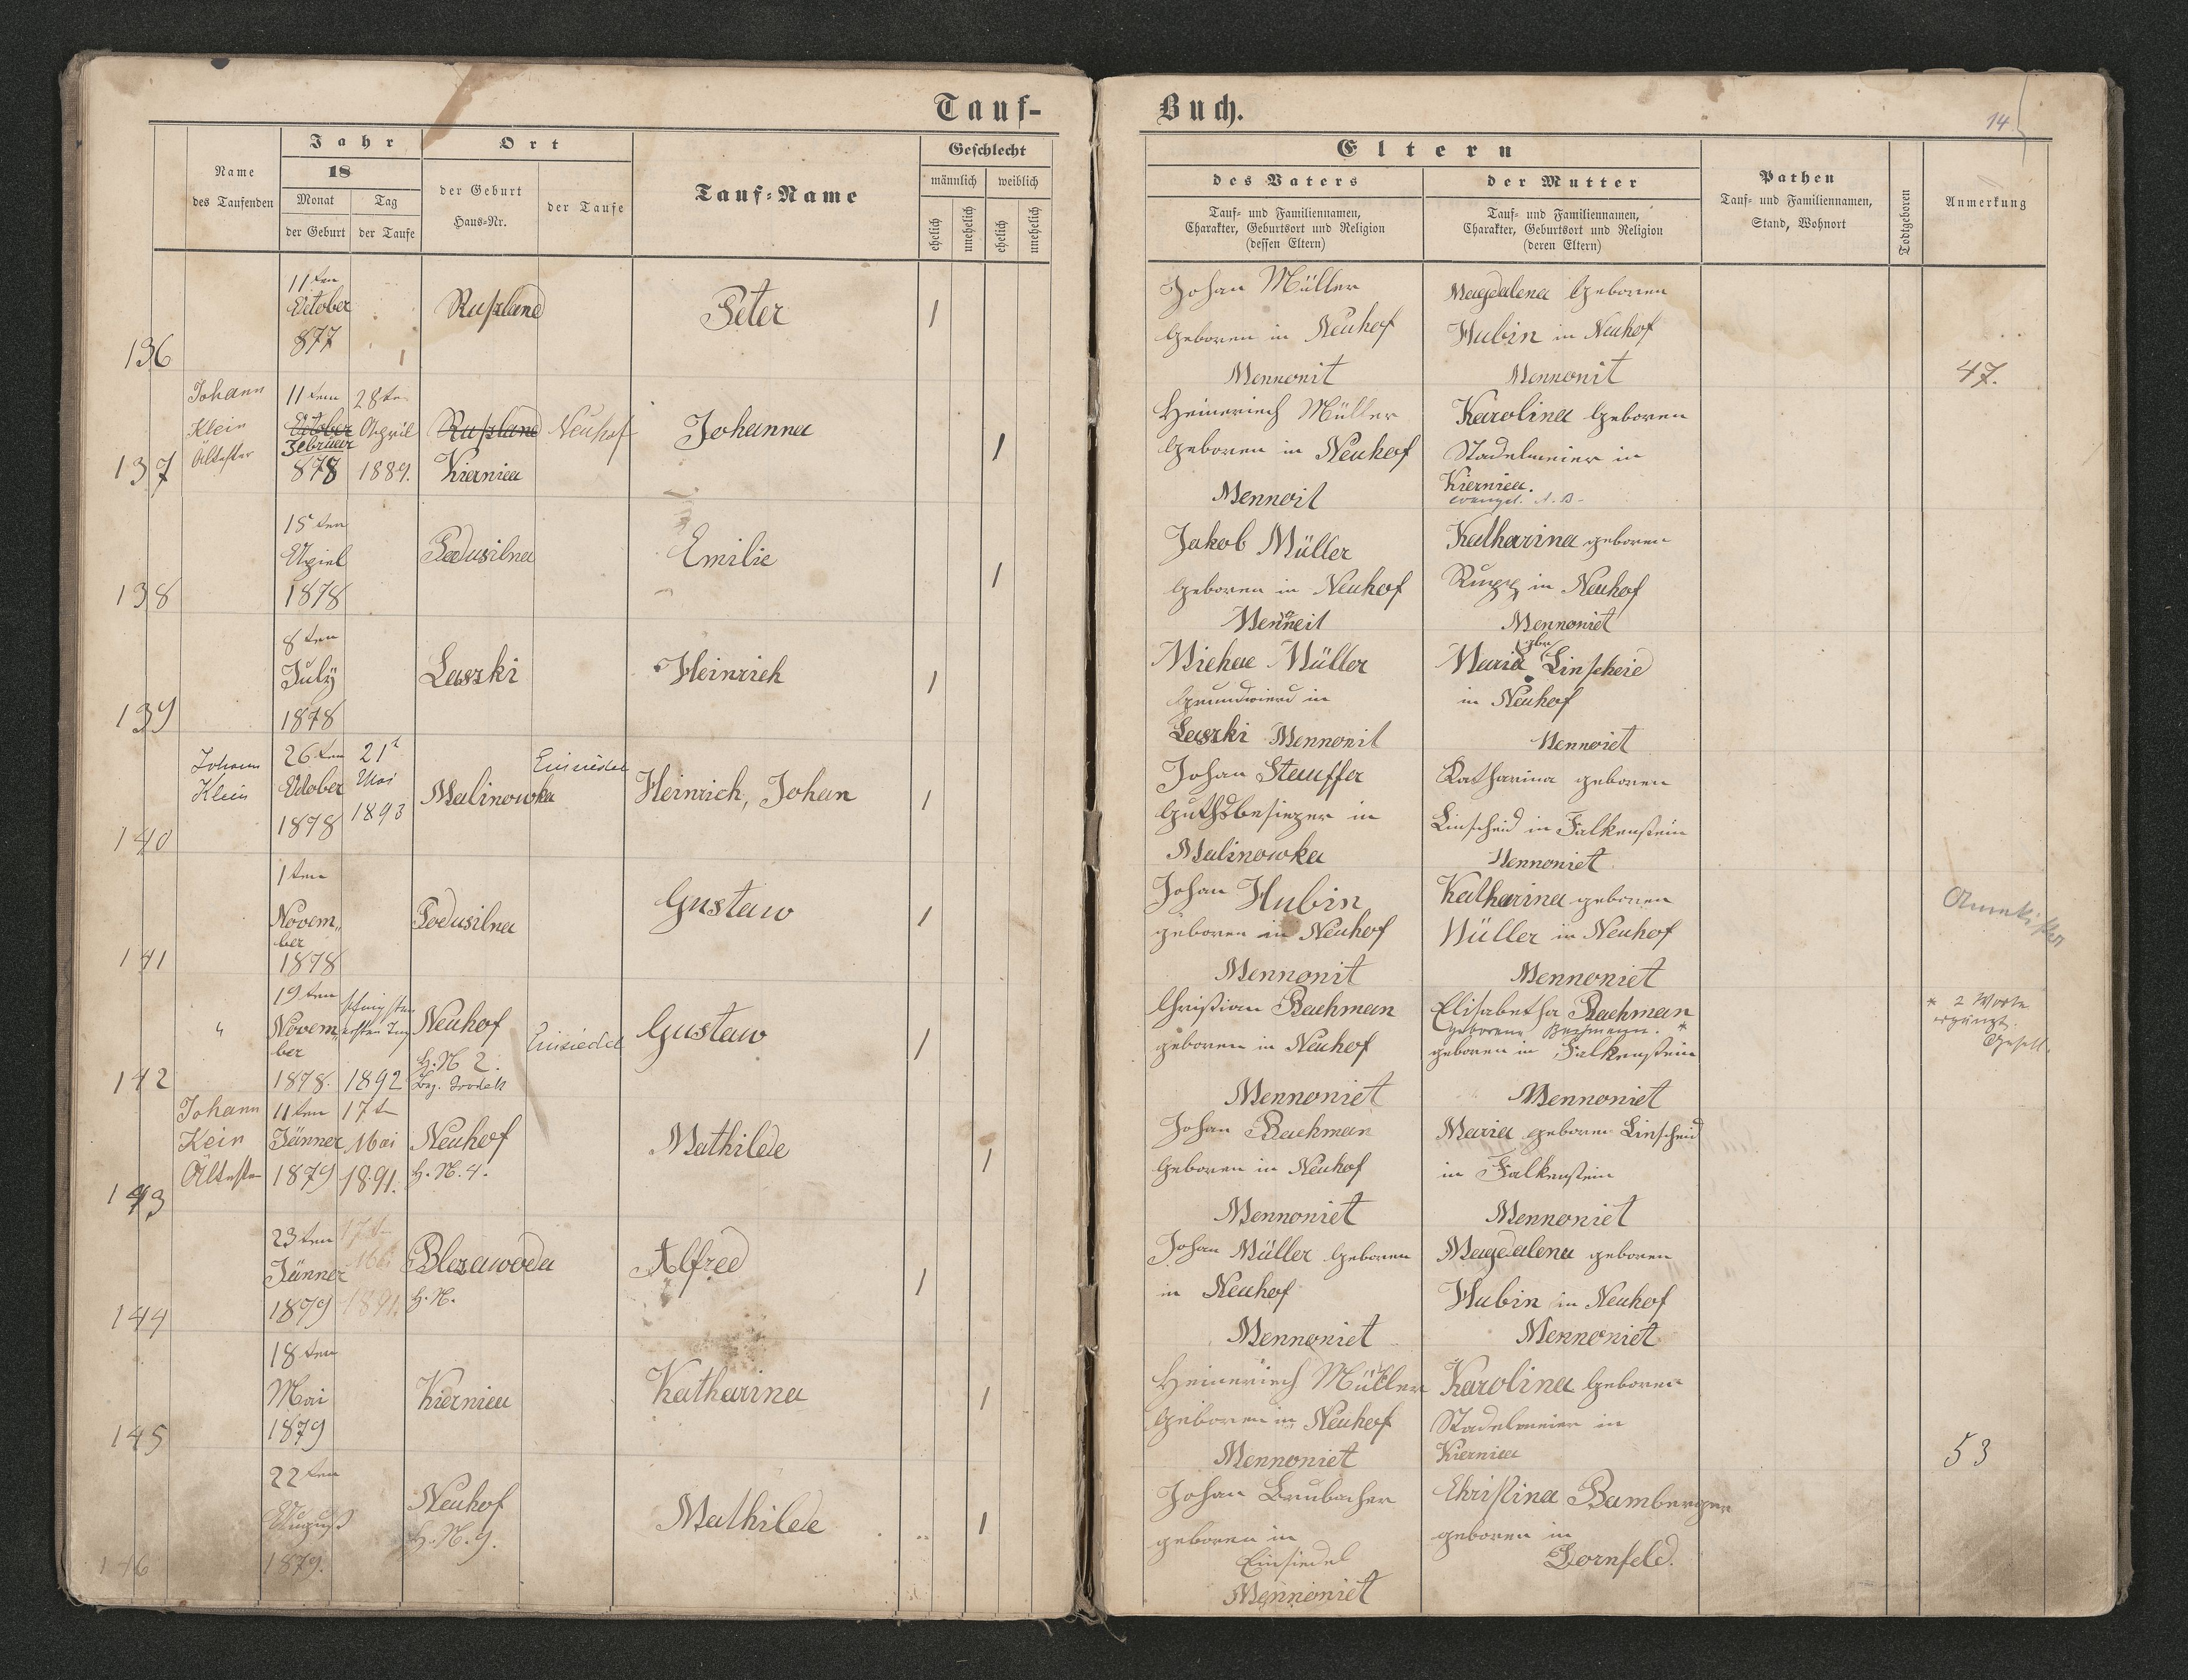 Tauf-
Buch.
14
Name
des Taufenden
Jahr
18
Monat
der Geburt
Tag
der Taufe
Ort
der Geburt
Haus-Nr.
der Taufe
Tauf-Name
Geschlecht
männlich
weiblich
ehelich
unehelich
ehelich
unehelich
Eltern
des Vaters
Tauf- und Familiennamen,
Charakter, Geburtsort und Religion
(dessen Eltern)
der Mutter
Tauf- und Familiennamen,
Charakter, Geburtsort und Religion
(deren Eltern)
Pathen
Tauf- und Familiennamen,
Stand, Wohnort
Todtgeboren
Anmerkung
136
11ten
October
877
Rußland
Peter
1
Johan Müller
Geboren in Neuhof
Mennonit
Magdalena Geboren
Hubin in Neuhof
Mennonit
47.
137
Johann
Klein
Ältester
11tem
October
Februar
878
28te
April
1889.
Rußland
Kiernica
Neuhof
Johanna
1
Heineriech Müller
Geboren in Neuhof
Mennoit
Karolina Geboren
Stadelmeier in
Kiernica.
evangel. A. B.
138
15ten
Apriel
1878
Podusilna
Emilie
1
Jakob Müller
Geboren in Neuhof
Katharina geboren
Rupp in Neuhof
Mennoniet
139
8ten
July
1878
Laszki
Heinrich
1
Michae Müller
Grundwierd in
Laszki Mennonit
Maria gebor Linscheid
in Neuhof
Mennoiet
140
Johann
Klein
26ten
October
1878
21t
Mai
1893
Malinowka
Einsiedel
Heinrich, Johan
1
Johan Stauffer
Guthsbesiezer in
Malinowka
Katharina geboren
Linscheid in Falkenstein
Mennoniet
141
1ten
Novem„
ber
1878
Podusilna
Gustaw
1
Johan Hubin
geboren in Neuhof
Mennonit
Katharina geboren
Müller in Neuhof
Mennoniet
142
"
19ten
Novem„
ber
1878.
pfingsten
ersten Tag
1892
Neuhof
H. N 2.
Bez. Grodek
Einsiedel
Gustaw
1
Christian Bachman
geboren in Neuhof
Mennoniet
Elisabetha Bachman
geborene Bachmann. *
geboren in Falkenstein
Mennoniet
* 2 Worte
ergänzt.
143
Johann
Kein
Ältester
11ten
Jänner
1879
17te
Mai
1891.
Neuhof
H. N. 4.
Mathilde
1
Johan Bachman
Geboren in Neuhof
Mennoniet
Maria geboren Linscheid
in Falkenstein
Mennoniet
144
23ten
Jänner
1879
17te
Mai
1891.
Blozawoda
H. N.
Alfred
1
Johan Müller Geboren
in Neuhof
Mennoniet
Magdalena geboren
Hubin in Neuhof
Mennoniet
145
18ten
Mai
1879
Kiernica
Katharina
1
Heineriech Müller
Geboren in Neuhof
Mennoniet
Karolina Geboren
Stadelmeier in
Kiernica
53
146
22ten
August
1879.
Neuhof
H. N. 9.
Mathilde
1
Johan Brubacher
geboren in
Einsiedel
Mennoniet
Christina Bamberger
geboren in
Dornfeld.